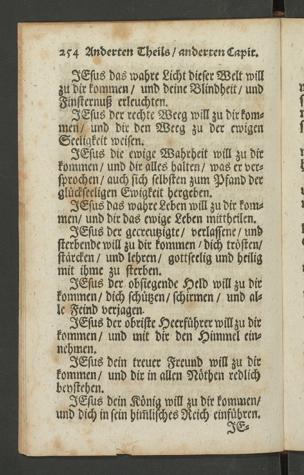 254 Anderten Theils / anderten Capit.
JEsus das wahre Licht dieser Welt will
zu dir kommen / und deine Blindheit / und
Finsternuß erleuchten.
JEsus der rechte Weeg will zu dir kom-
men / und dir den Weeg zu der ewigen
Seeligkeit weisen.
JEsus die ewige Wahrheit will zu dir
kommen / und dir alles halten / was er ver-
sprochen / auch sich selbsten zum Pfand der
glückseeligen Ewigkeit hergeben.
JEsus das wahre Leben will zu dir kom-
men / und dir das ewige Leben mittheilen.
JEsus der gecreutzigte / verlassene / und
sterbende will zu dir kommen / dich trösten /
stärcken / und lehren / gottseelig und heilig
mit ihme zu sterben.
JEsus der obsiegende Held will zu dir
kommen / dich schützen / schirmen / und al-
le Feind verjagen.
JEsus der obriste Heerführer will zu dir
kommen / und mit dir den Himmel ein-
nehmen.
JEsus dein treuer Freund will zu dir
kommen / und dir in allen Nöthen redlich
beystehen.
JEsus dein König will zu dir kommen /
und dich in sein him̃lisches Reich einführen.
JE-